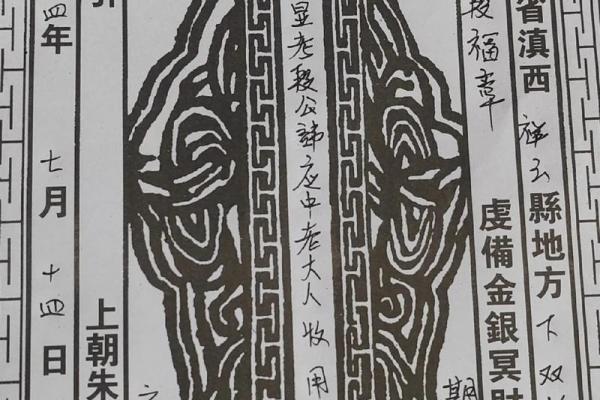 省滇西祥云縣地方下双
段福章
虔備金銀冥財
期
顯考段公諱應中老大人收用
上朝朱
引
四年七月十四日